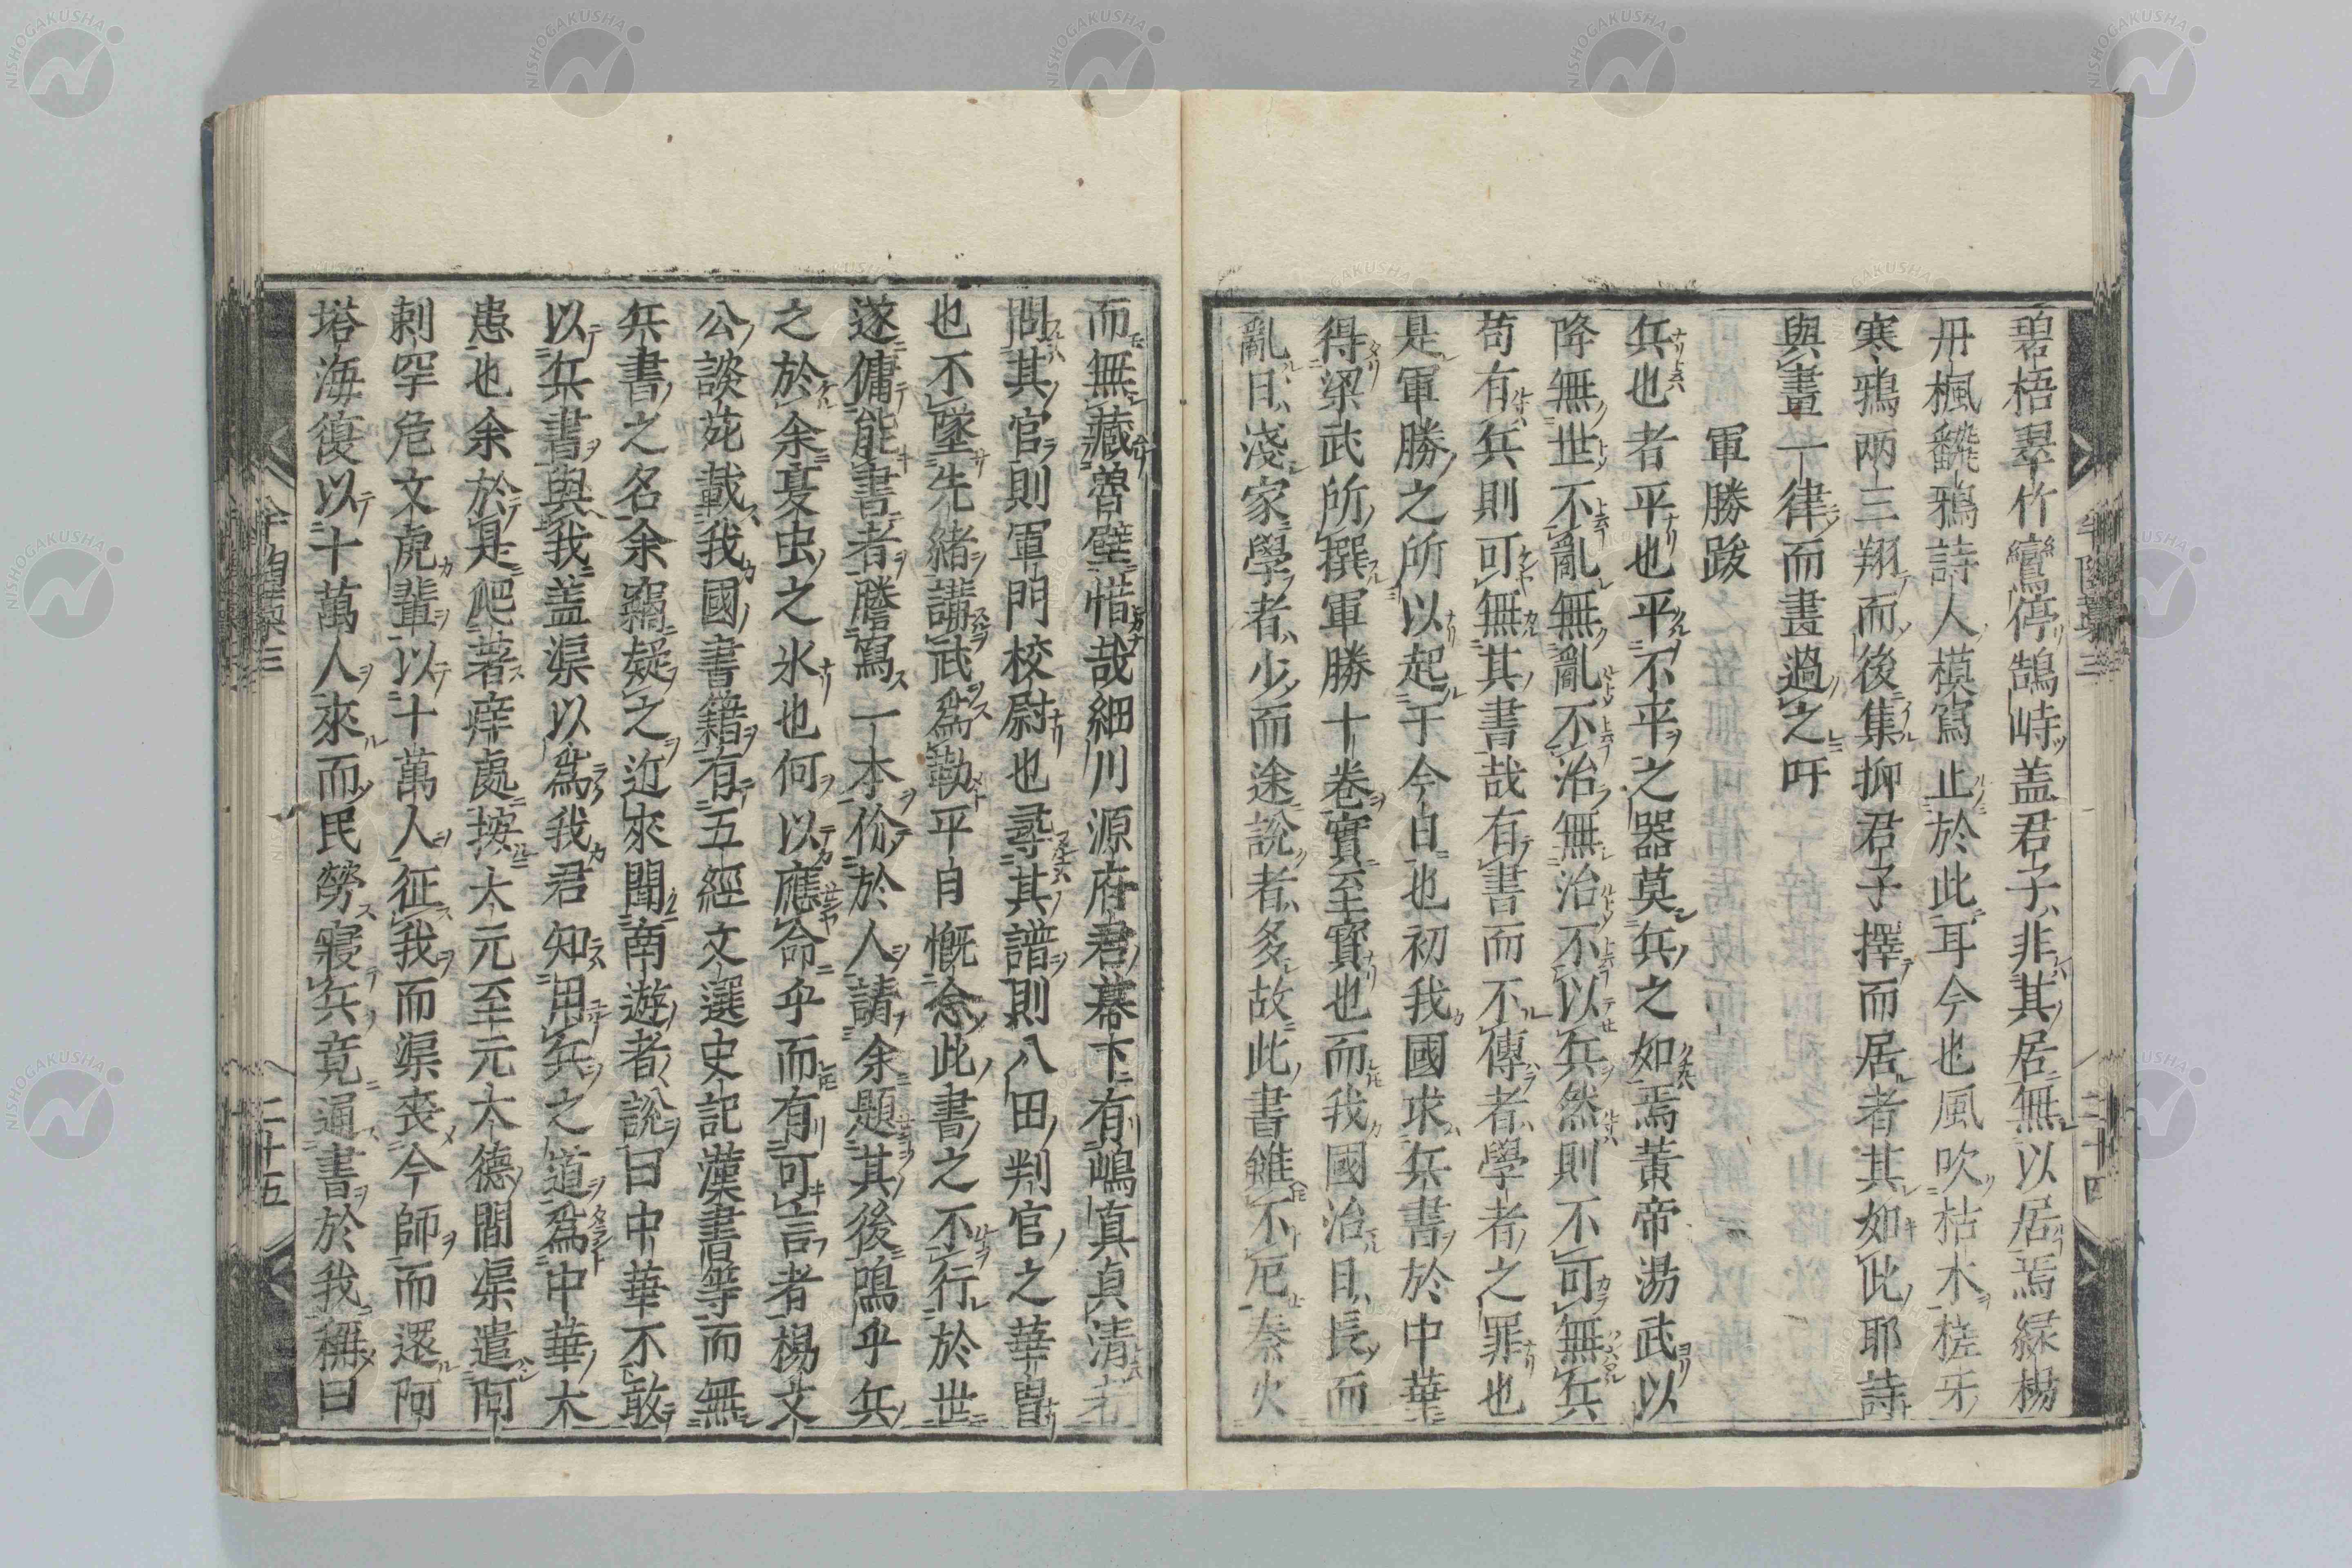 碧梧翠竹鸞停鵠峙盖君子非其居無以居焉緑楊
丹楓飜鴉詩人模寫止於此耳今也風吹枯木槎牙
寒鴉兩三翔而後集抑君子擇而居者其如此耶詩
與畫一律而畫過之吁
軍勝跋
兵也者平也平不平之器莫兵之如焉黄帝湯武以
降無世不亂無亂不治無治不以兵然則不可無兵
苟有兵則可無其書哉有書而不傳者學者之罪也
是軍勝之所以起于今日也初我國求兵書於中華
得梁武所撰軍勝十卷實至寳也而我國治日長而
亂日淺家學者少而途說者多故此書雖不厄秦火
而無藏魯壁惜哉細川源府君幕下有嶋真貞清者
問其官則軍門校尉也尋其譜則八田判官之華冑
也不墜先緒講武爲勤平自慨念此書之不行於世
遂傭能書者謄寫一本价於人請余題其後鳴乎兵
之於余夏虫之氷也何以應命乎而有可言者楊文
公談苑載我國書籍有五經文選史記漢書等而無
兵書之名余竊疑之近來聞南遊者說曰中華不敢
以兵書與我盖渠以爲我君知用兵之道爲中華大
患也余於是爬著痒處按大元至元大德間渠遣阿
剌罕危文虎輩以十萬人征我而渠喪今師而還阿
塔海復以十萬人來而民勞寢兵竟通書於我稱曰
三
二十四
三
二十五
NISHOGAKUSHA